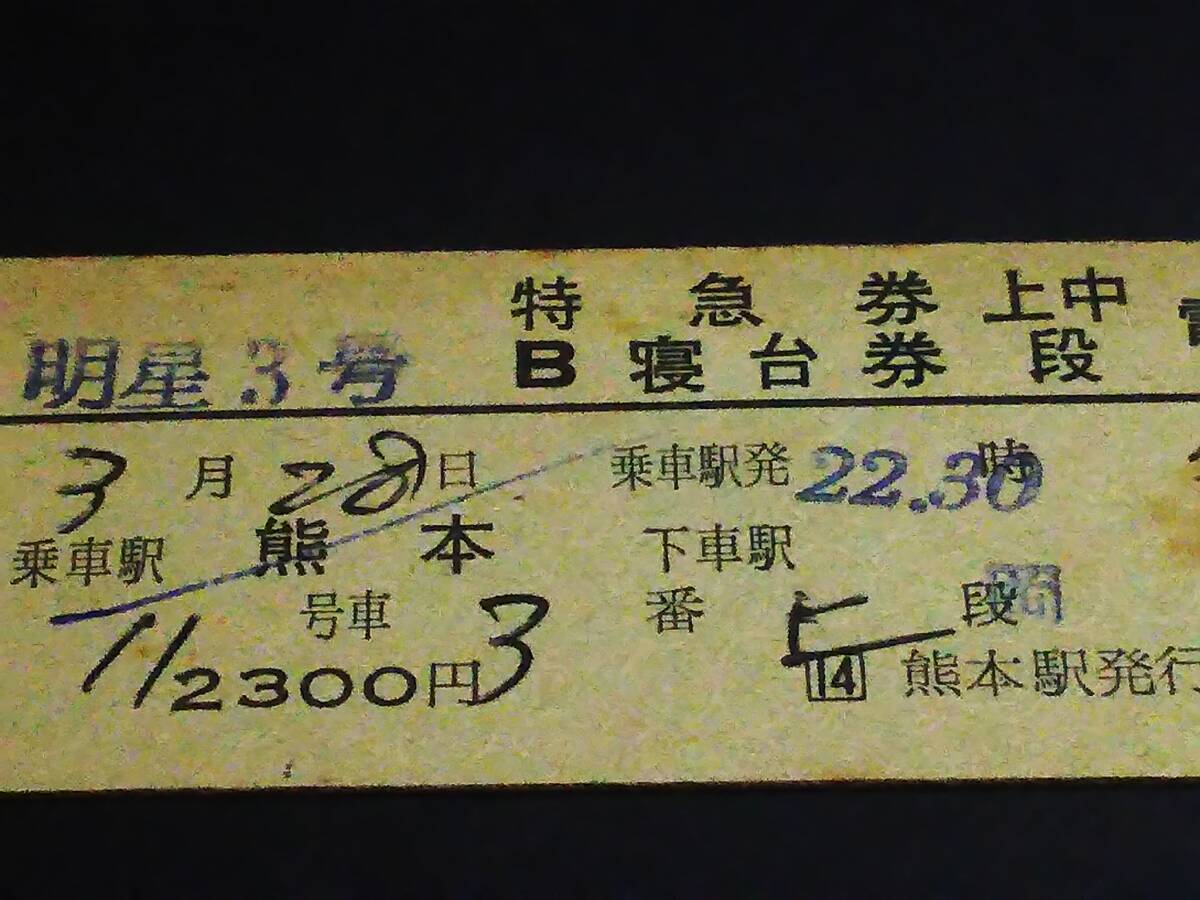 特急券 上中
明星3号 B寝台券 段
3月28日 乗車駅発 22.30時
乗車駅 熊本 下車駅
11号車 3番 段
2300円 14 熊本駅発行